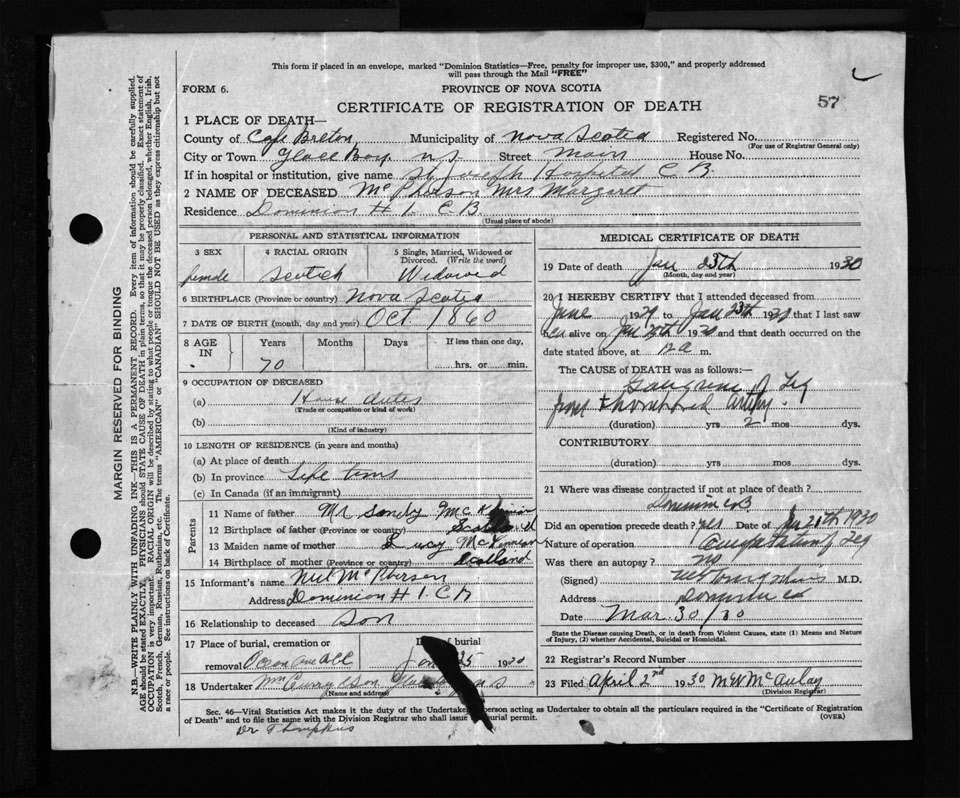 This form if placed in an envelope, marked "Dominion Statistics—Free, penalty for improper use, $300," and properly addressed
will pass through the Mail "FREE"
FORM 6.
PROVINCE OF NOVA SCOTIA
57
CERTIFICATE OF REGISTRATION OF DEATH
1 PLACE OF DEATH—
County of Cape Breton Municipality of Nova Scotia Registered No.
(For use of Registrar General only)
City or Town Glace Bay N.S. Street Main House No.
If in hospital or institution, give name St Joseph Hospital C B.
2 NAME OF DECEASED McPherson Mrs Margaret
Residence Dominion # 1. C B.
(Usual place of abode)
PERSONAL AND STATISTICAL INFORMATION
3 SEX 4 RACIAL ORIGIN 5 Single, Married, Widowed or
Divorced. (Write the word)
female Scotich Widowed
6 BIRTHPLACE (Province or country) Nova Scotia
7 DATE OF BIRTH (month, day and year) Oct. 1860
8 AGE IN Years Months Days If less than one day,
70 hrs. or min.
9 OCCUPATION OF DECEASED
(a) House
(Trade or occupation or kind of work)
(b)
(Kind of industry)
10 LENGTH OF RESIDENCE (in years and months)
(a) At place of death
(b) In province Life time
(c) In Canada (if an immigrant)
Parents
11 Name of father Mr Sandy McKinnon
12 Birthplace of father (Province or country) Scotland
13 Maiden name of mother Lucy McKinnon
14 Birthplace of mother (Province or country) Scotland
15 Informant's name Neil McPherson
Address Dominion # 1. C B
16 Relationship to deceased Son
17 Place of burial, cremation or Date of burial
removal Jan 25 1930
18 Undertaker Wm Curry & Son Glace Bay N S
(Name and address)
MEDICAL CERTIFICATE OF DEATH
19 Date of death Jan 23th 1930
(Month, day and year)
20 I HEREBY CERTIFY that I attended deceased from
June 1929 to Jan 23th 1930 that I last saw
her alive on Jan 1930 and that death occurred on the
date stated above, at 12 a m.
The CAUSE of DEATH was as follows:—
Gangrene of Leg
from artery.
(duration) yrs 2 mos dys.
CONTRIBUTORY
(duration) yrs mos dys.
21 Where was disease contracted if not at place of death?
Dominion C.B.
Did an operation precede death? yes Date of Jan 21th 1930
Nature of operation Amputation of Leg
Was there an autopsy? no
(Signed) M.D.
Address Dominion C B
Date Mar. 30/30
State the Disease causing Death, or in death from Violent Causes, state (1) Means and Nature
of Injury, (2) whether Accidental, Suicidal or Homicidal.
22 Registrar's Record Number
23 Filed April 2nd 1930 M W McAulay
(Division Registrar)
Sec. 46—Vital Statistics Act makes it the duty of the Undertaker person acting as Undertaker to obtain all the particulars required in the "Certificate of Registration
of Death" and to file the same with the Division Registrar who shall issue burial permit.
(OVER)
Dr Thompkins
MARGIN RESERVED FOR BINDING
N.B.—WRITE PLAINLY WITH UNFADING INK—THIS IS A PERMANENT RECORD. Every item of information should be carefully supplied.
AGE should be stated EXACTLY. PHYSICIANS should STATE CAUSE OF DEATH in plain terms, so that it may be properly classified. Exact statement of
OCCUPATION is very important. RACIAL ORIGIN will be described by stating to what people or tongue the deceased person belonged, whether English, Irish,
Scotch, French, German, Russian, Ruthenian, etc. The terms "AMERICAN" or "CANADIAN" SHOULD NOT BE USED as they express citizenship but not
a race or people. See instructions on back of Certificate.